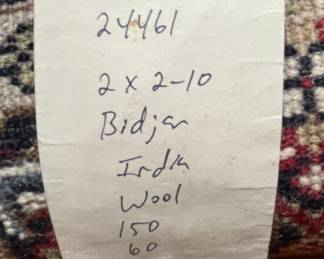 24461
2 x 2-10
Bidjar
India
Wool
150
60